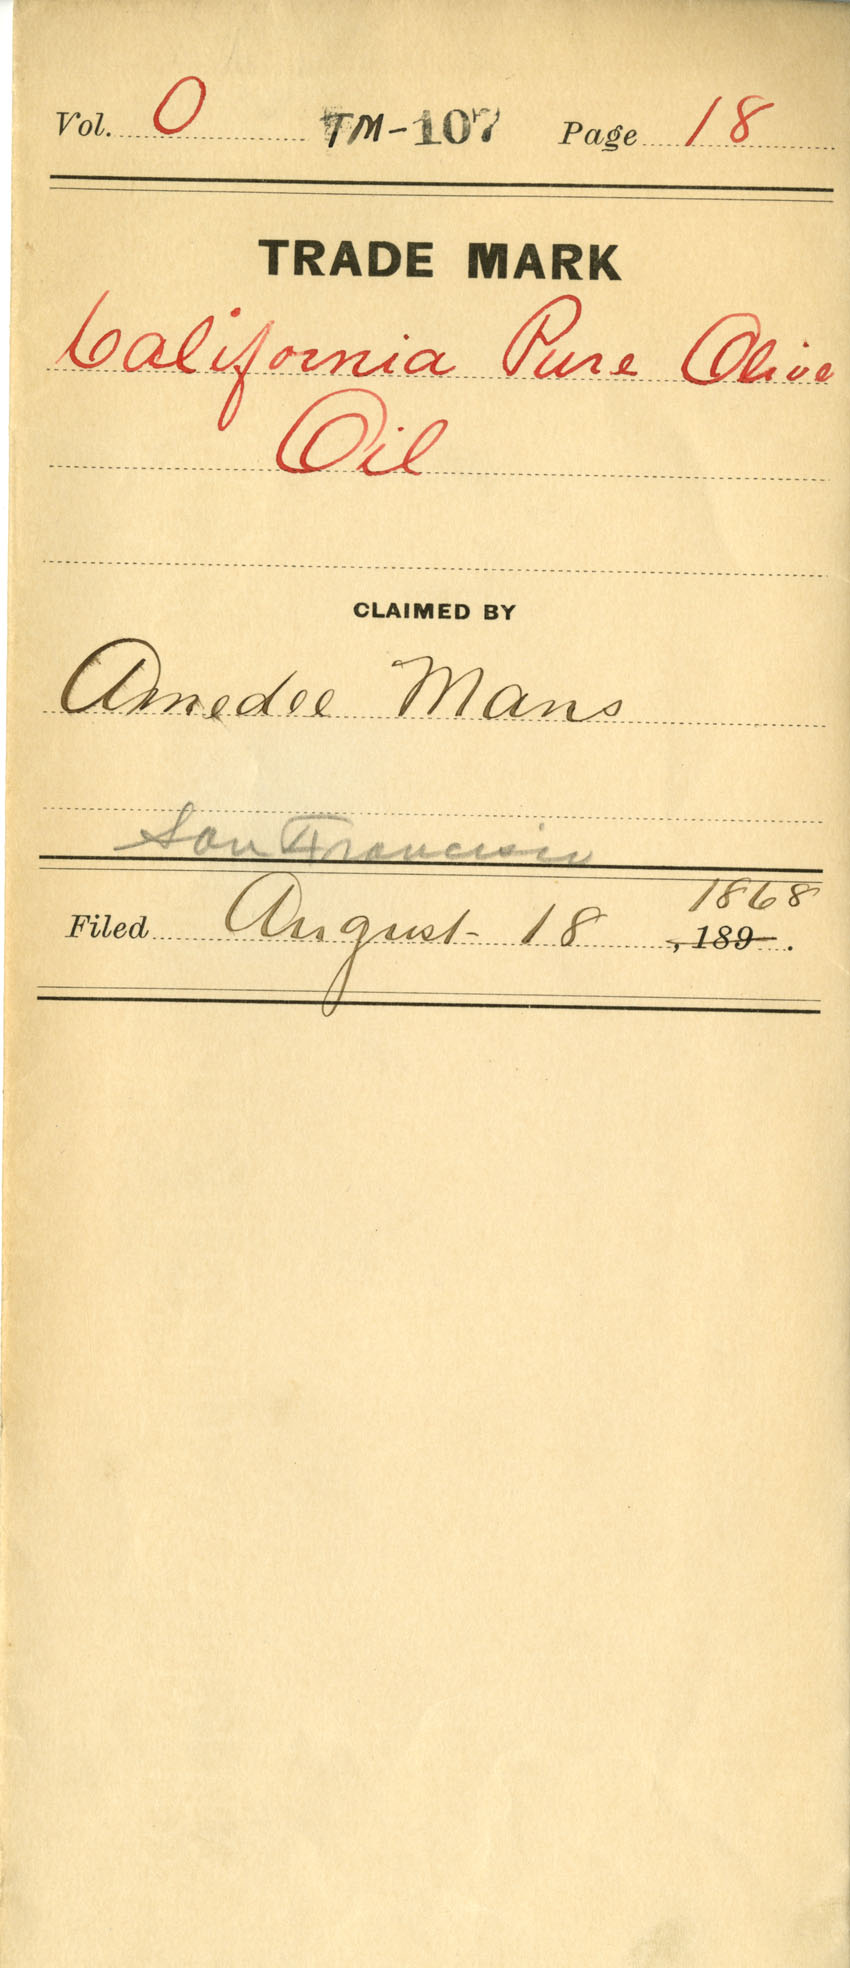 Vol. 0 TM-107 Page 18
TRADE MARK
California Pure Olive
Oil
CLAIMED BY
Amedee Mans
San Francisco
1868
Filed August 18 , 189 .